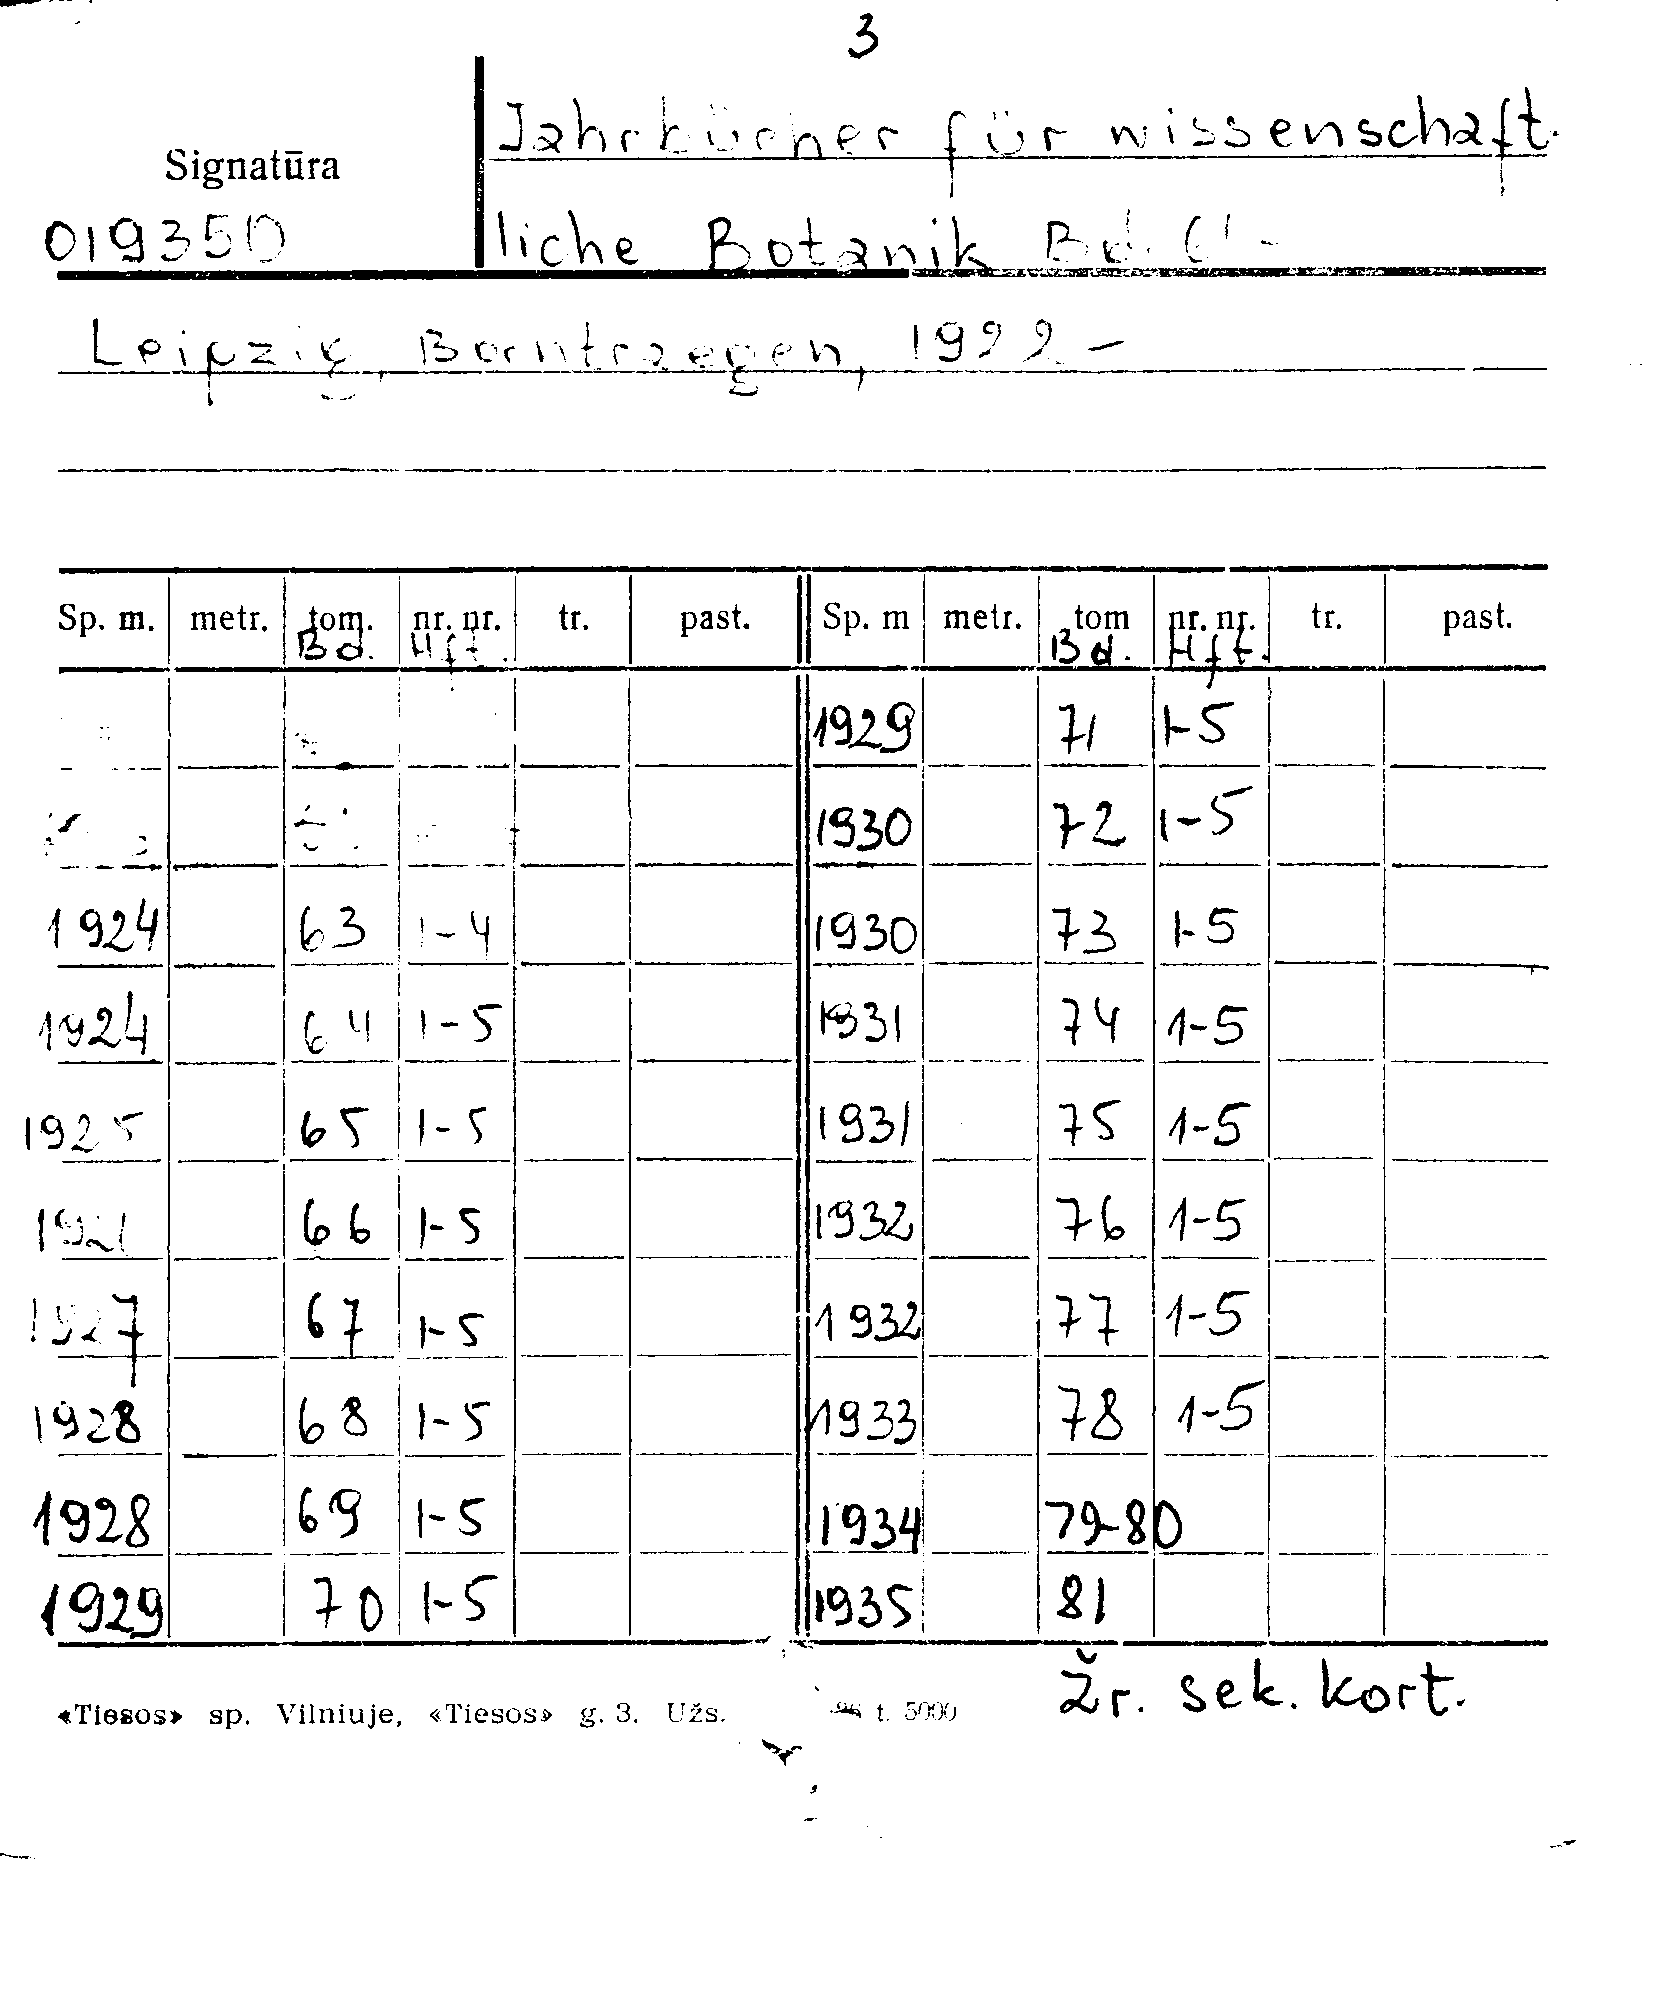 3
Jahrbücher für wissenschaft-
Signatūra
019350
liche Botanik Bd. 61-
Leipzig, Borntraegen, 1922-
Sp. m. metr. tom. nr. nr. tr. past. Sp. m metr. tom nr. nr. tr. past.
Bd. Hft. Bd. Hft.
1929 71 1-5
1930 72 1-5
1924 63 1-4 1930 73 1-5
1924 64 1-5 1931 74 1-5
1925 65 1-5 1931 75 1-5
66 1-5 1932 76 1-5
1927 67 1-5 1932 77 1-5
1928 68 1-5 1933 78 1-5
1928 69 1-5 1934 79-80
1929 70 1-5 1935 81
Žr. sek. kort.
«Tiesos» sp. Vilniuje, «Tiesos» g. 3. Užs. t. 5000